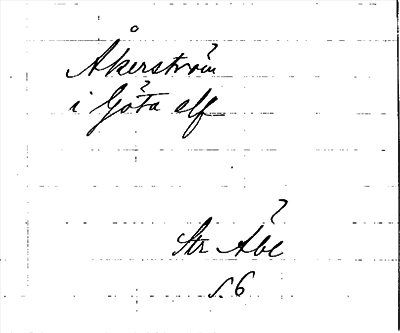 Åkerström
i Göta elf
Str Åbc
s. 6